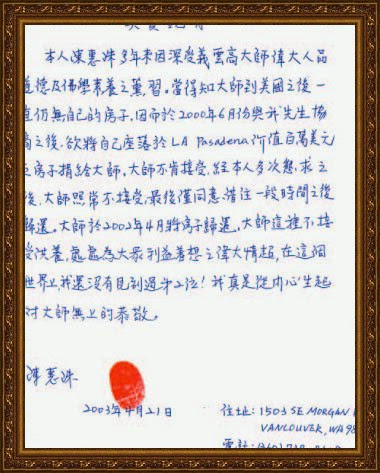 本人陳惠珠多年来因深受義雲高大師偉大人品
道德及佛學素養之薰習。當得知大師到美國之後一
直仍無自己的房子,因而於2000年6月份與我先生協
商之後,欲將自己座落於LA Pasadena价值百萬美元
之房子捐給大師,大師不肯接受,経本人多次懇求之
後,大師照常不接受,最後僅同意借住一段時間之後
歸還。大師於2002年4月將房子歸還,大師這種不接
受供養,處處為大眾利益著想之偉大情超,在這個
世界上我還沒有見到過第二位!我真是從内心生起
對大師無上的恭敬。
陳惠珠
2003年4月21日
住址:1503 SE MORGAN
VANCOUVER, WA 98
電話: